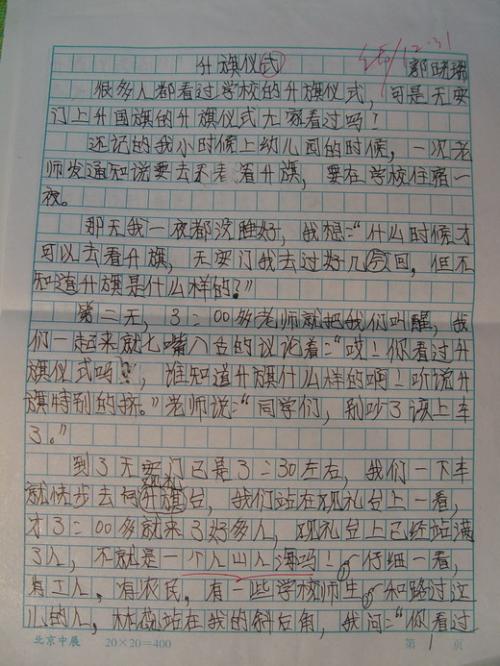 升旗仪式
12.31
很多人都看过学校的升旗仪式，可是天安
门上升国旗的升旗仪式大家看过吗？
还记的我小时候上幼儿园的时候，一次老
师发通知说要去看升旗，要在学校住宿一
夜。
那天我一夜都没睡好，我想：“什么时候才
可以去看升旗，天安门我去过好几回，但不
知道升旗是什么样的？”
第二天，3：00多老师就把我们叫醒，我
们一起来就七嘴八舌的议论着：“哎！你看过升
旗仪式吗？，谁知道升旗什么样的啊！听说升
旗特别的挤。”老师说：“同学们，别吵了该上车
了。”
到了天安门已是3：30左右，我们一下车
就快步去向升旗台，我们站在观礼台上一看，
才3：00多就来了好多人，观礼台上已经站满
了人，不就是一个人山人海吗！仔细一看，
有工人，有农民，有一些学校师生和路过这
儿的人，站在我的斜右角，我问：“你看过
北京中展 20×20=400 第 1 页